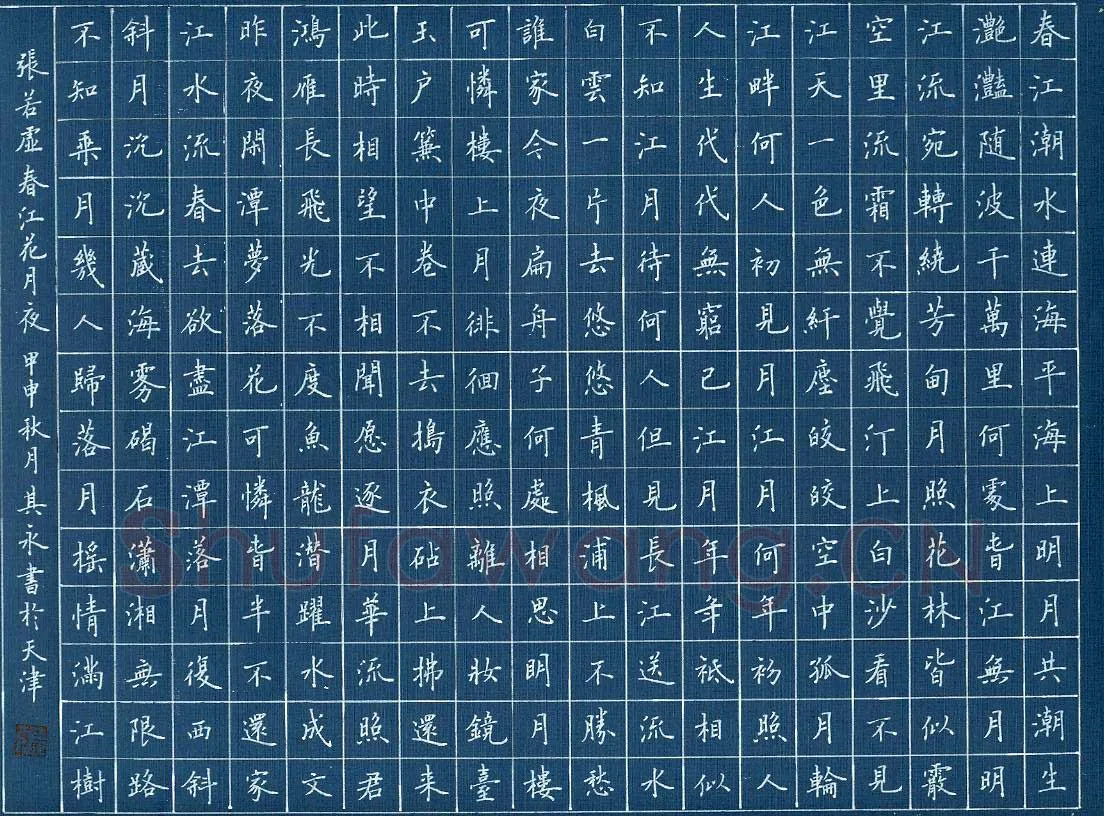 春江潮水連海平海上明月共潮生
灧灩随波千萬里何處旾江無月明
江流宛轉繞芳甸月照花林皆似霰
空里流霜不覺飛汀上白沙看不見
江天一色無纤塵皎皎空中孤月輪
江畔何人初見月江月何年初照人
人生代代無窮已江月年年祗相似
不知江月待何人但見長江送流水
白雲一片去悠悠青楓浦上不勝愁
誰家今夜扁舟子何處相思明月樓
可憐樓上月徘徊應照離人妝鏡臺
玉户簾中卷不去搗衣砧上拂還来
此時相望不相聞愿逐月華流照君
鴻雁長飛光不度魚龍潜躍水成文
昨夜閑潭夢落花可憐旾半不還家
江水流春去欲盡江潭落月復西斜
斜月沉沉藏海雾碣石瀟湘無限路
不知乘月幾人歸落月摇情滿江樹
張若虛春江花月夜 甲申秋月 其永書於天津
Shufawang.CN